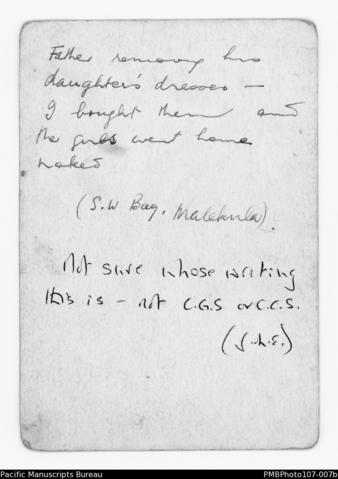 Father removing his
daughters' dresses —
I bought them and
the girls went home
naked
(S.W Bay, Malekula).
Not sure whose writing
this is – not C.G.S or C.C.S.
(J.h.E.)
Pacific Manuscripts Bureau
PMBPhoto107-007b